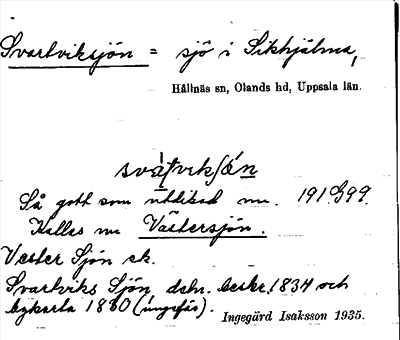 Svartviksjön = sjö i Sikhjälma,
Hållnäs sn, Olands hd, Uppsala län.
Så gott som utdikad nu. 191 G 99.
Kallas nu Västersjön.
Vester Sjön ek.
Svartviks Sjön dsln. beskr. 1834 och
bykarta 1860 (ungefär).
Ingegärd Isaksson 1935.